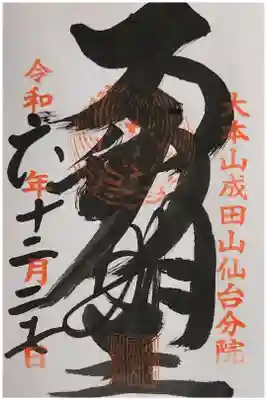 大本山成田山仙台分院
不動明王
令和六年十二月二十日